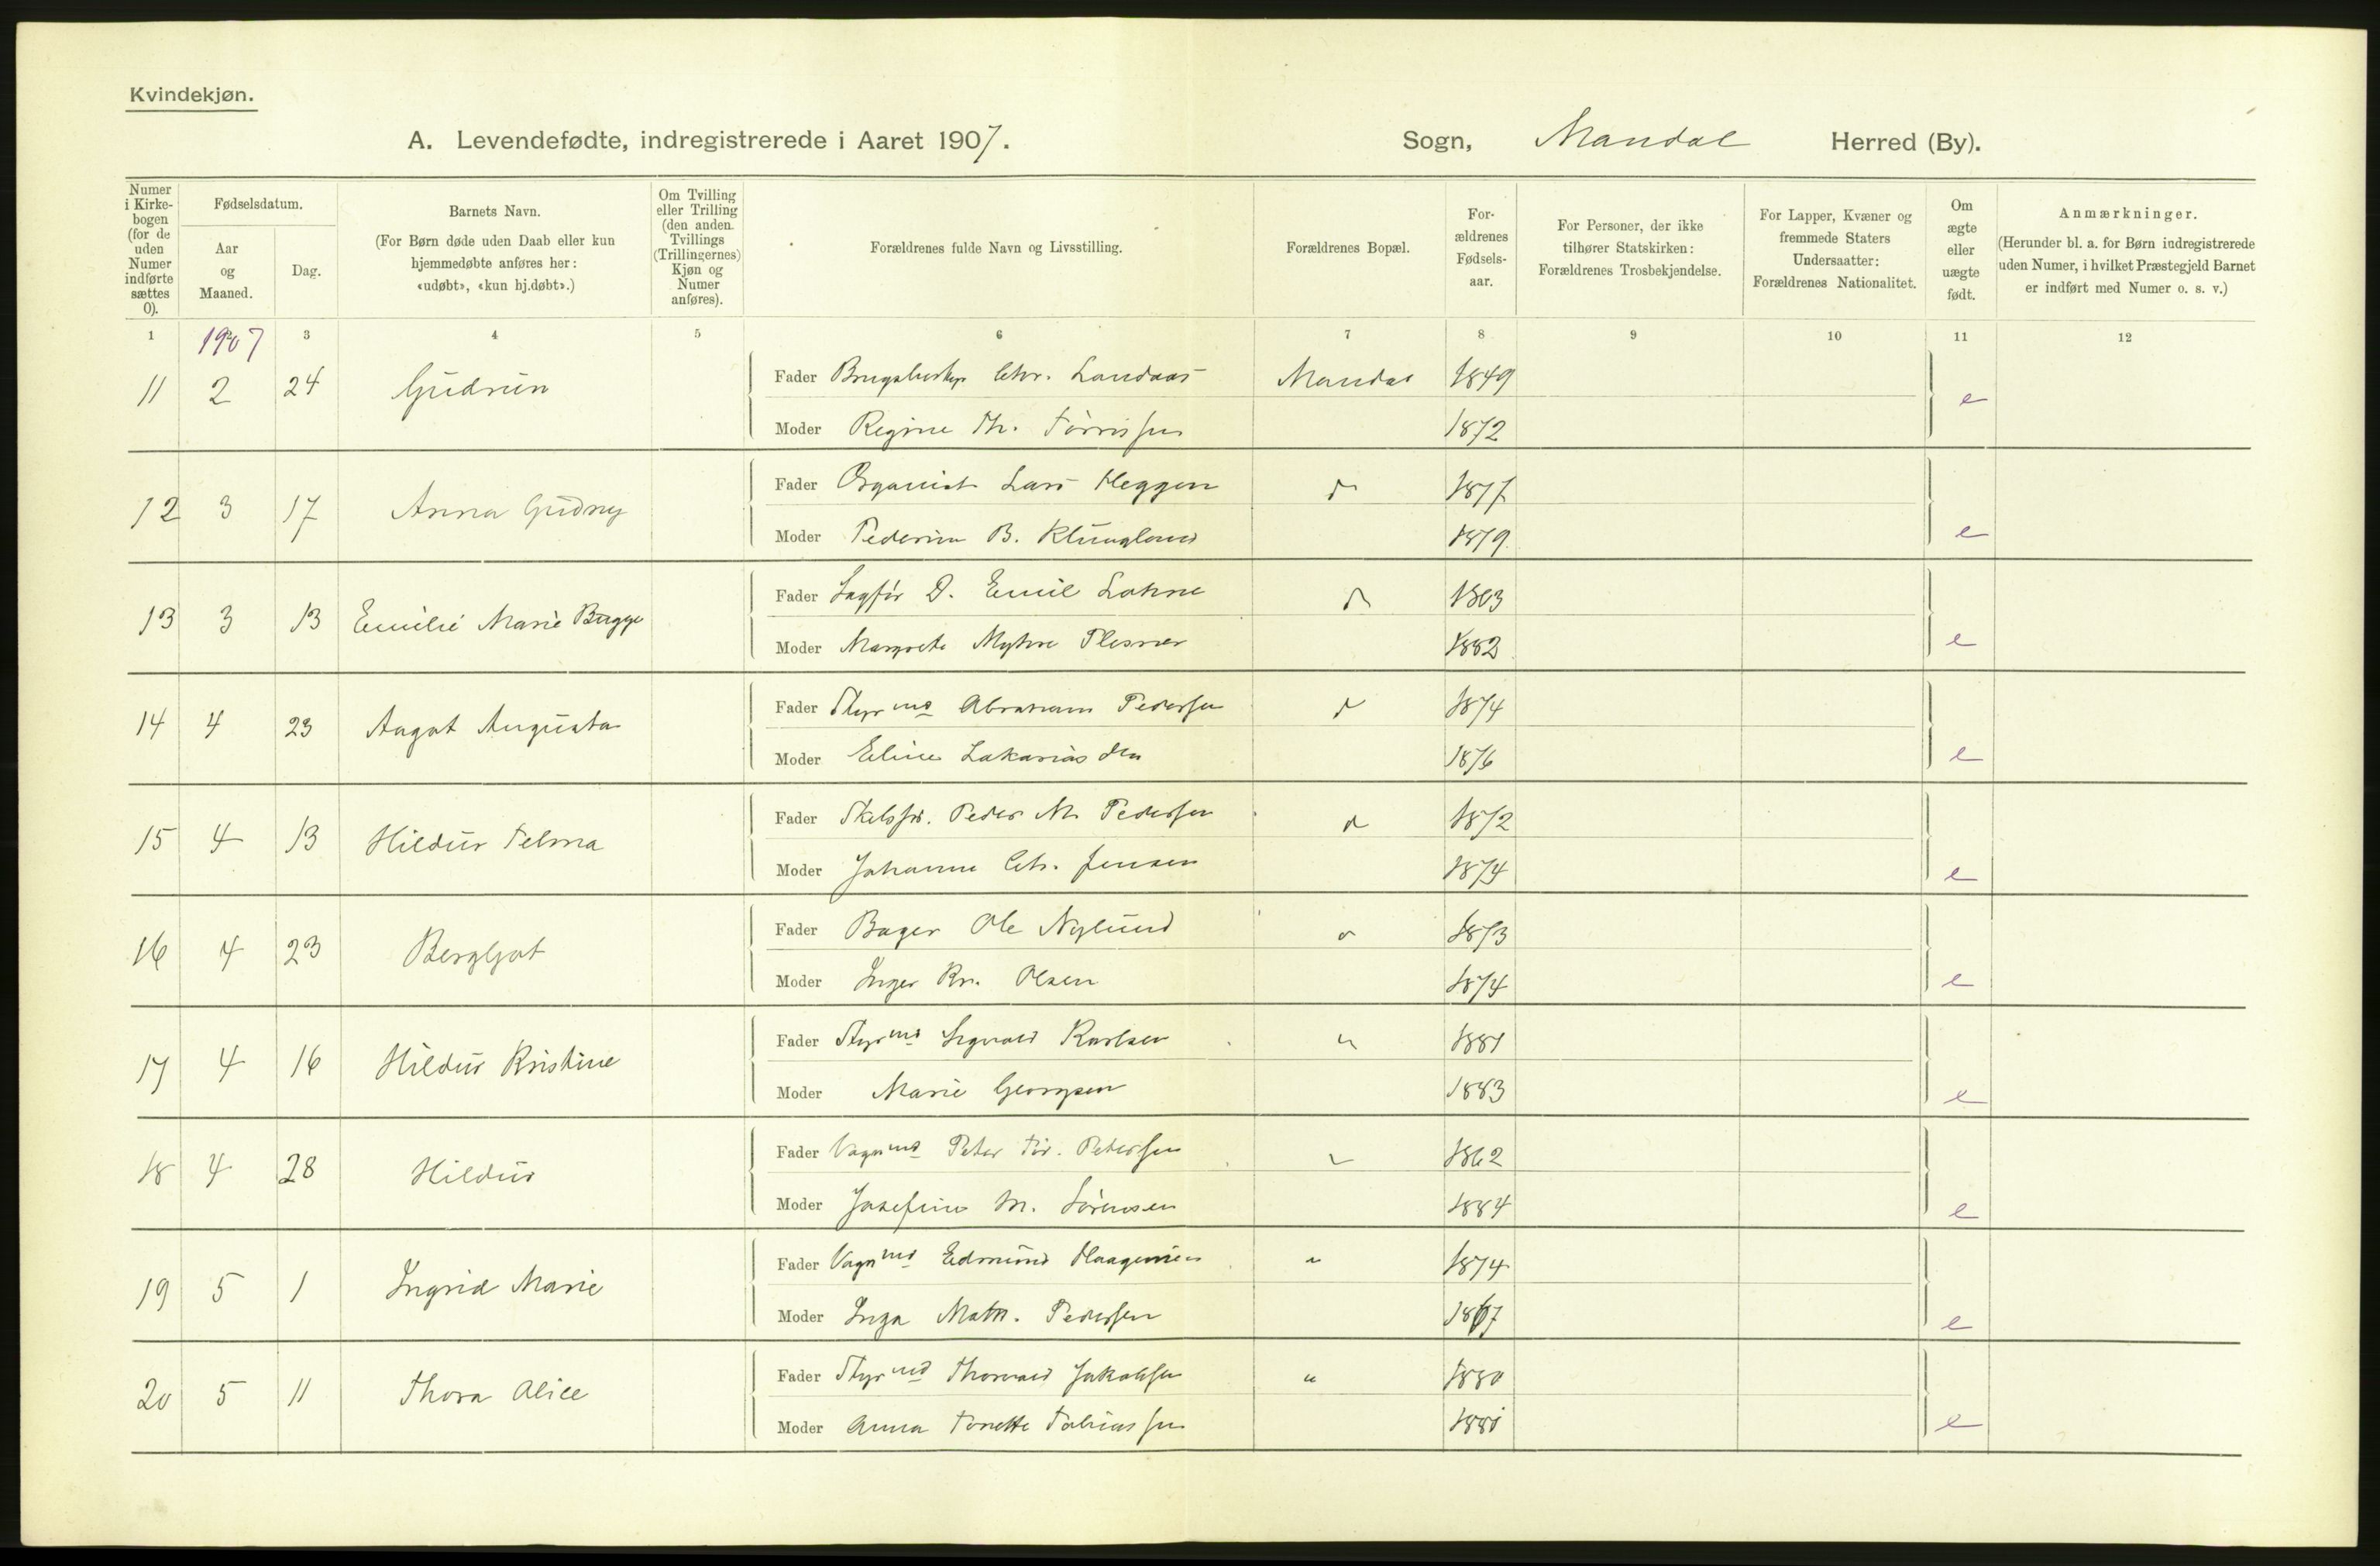 Kvindekjøn.
A. Levendefødte, indregistrerede i Aaret 1907. Sogn, Mandal Herred (By).
Numer i Kirkebogen (for de uden Numer indførte sættes 0).
Fødselsdatum.
Aar og Maaned.
Dag.
Barnets Navn.
(For Børn døde uden Daab eller kun hjemmedøbte anføres her: «udøbt», «kun hj.døbt».)
Om Tvilling eller Trilling (den anden. Tvillings (Trillingernes) Kjøn og Numer anføres).
Forældrenes fulde Navn og Livsstilling.
Forældrenes Bopæl.
Forældrenes Fødselsaar.
For Personer, der ikke tilhører Statskirken: Forældrenes Trosbekjendelse.
For Lapper, Kvæner og fremmede Staters Undersaatter: Forældrenes Nationalitet.
Om ægte eller uægte født.
Anmærkninger.
(Herunder bl. a. for Børn indregistrerede uden Numer, i hvilket Præstegjeld Barnet er indført med Numer o. s. v.)
1 1907 3 4 5 6 7 8 9 10 11 12
11 2 24 Gudrun Fader Chr. Landaas Mandal 1849 e
Moder Regine Th. Tørrissen 1872
12 3 17 Anna Gudny Fader Organist Lars Heggen 1877 e
Moder B. Klungland 1879
13 3 13 Emilie Marie Bugge Fader Sagfør D. Emil Lohne e
Moder Margrete Myhre Plesner 1882
14 4 23 Aagot Augusta Fader Styrmd Abraham Pedersen 1874 e
Moder Eline Zakariasden 1876
15 4 13 Hildur Telma Fader Peder M. Pedersen 1872 e
Moder Johanne Chr. Jensen 1874
16 4 23 Bergljot Fader Bager Ole Nylund 1873 e
Moder Inger Kr. Olsen 1874
17 4 16 Hildur Kristine Fader Styrmd Sigvald Karlsen " 1881 e
Moder Marie Georgsen 1883
18 4 28 Hildur Fader Vognmd Peter Tør. Petersen 1862 e
Moder Josefine M. Sørensen 1884
19 5 1 Ingrid Marie Fader Vognmd Edmund Haagensen " 1874 e
Moder Inga Math. Pedersen 1867
20 5 11 Thora Alice Fader Styrmd Thorvald Jakobsen " 1880 e
Moder Anna Tonette Tobiassen 1881